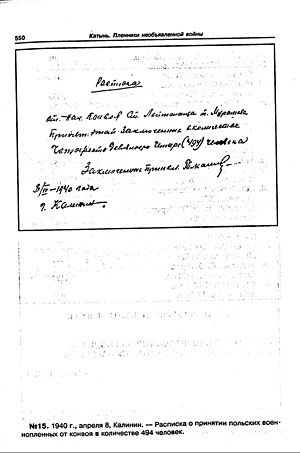 550
Катынь. Пленники необъявленной войны
Расписка
от. нач. Конвоя Ст. Лейтенанта т. Мурашева
этап Заключенных в количестве
Четыреста Девяносто Четыре (494) человека
Заключенных принял
8/IV-1940 года
г. Калинин.
№15. 1940 г., апреля 8, Калинин. — Расписка о принятии польских воен-
нопленных от конвоя в количестве 494 человек.